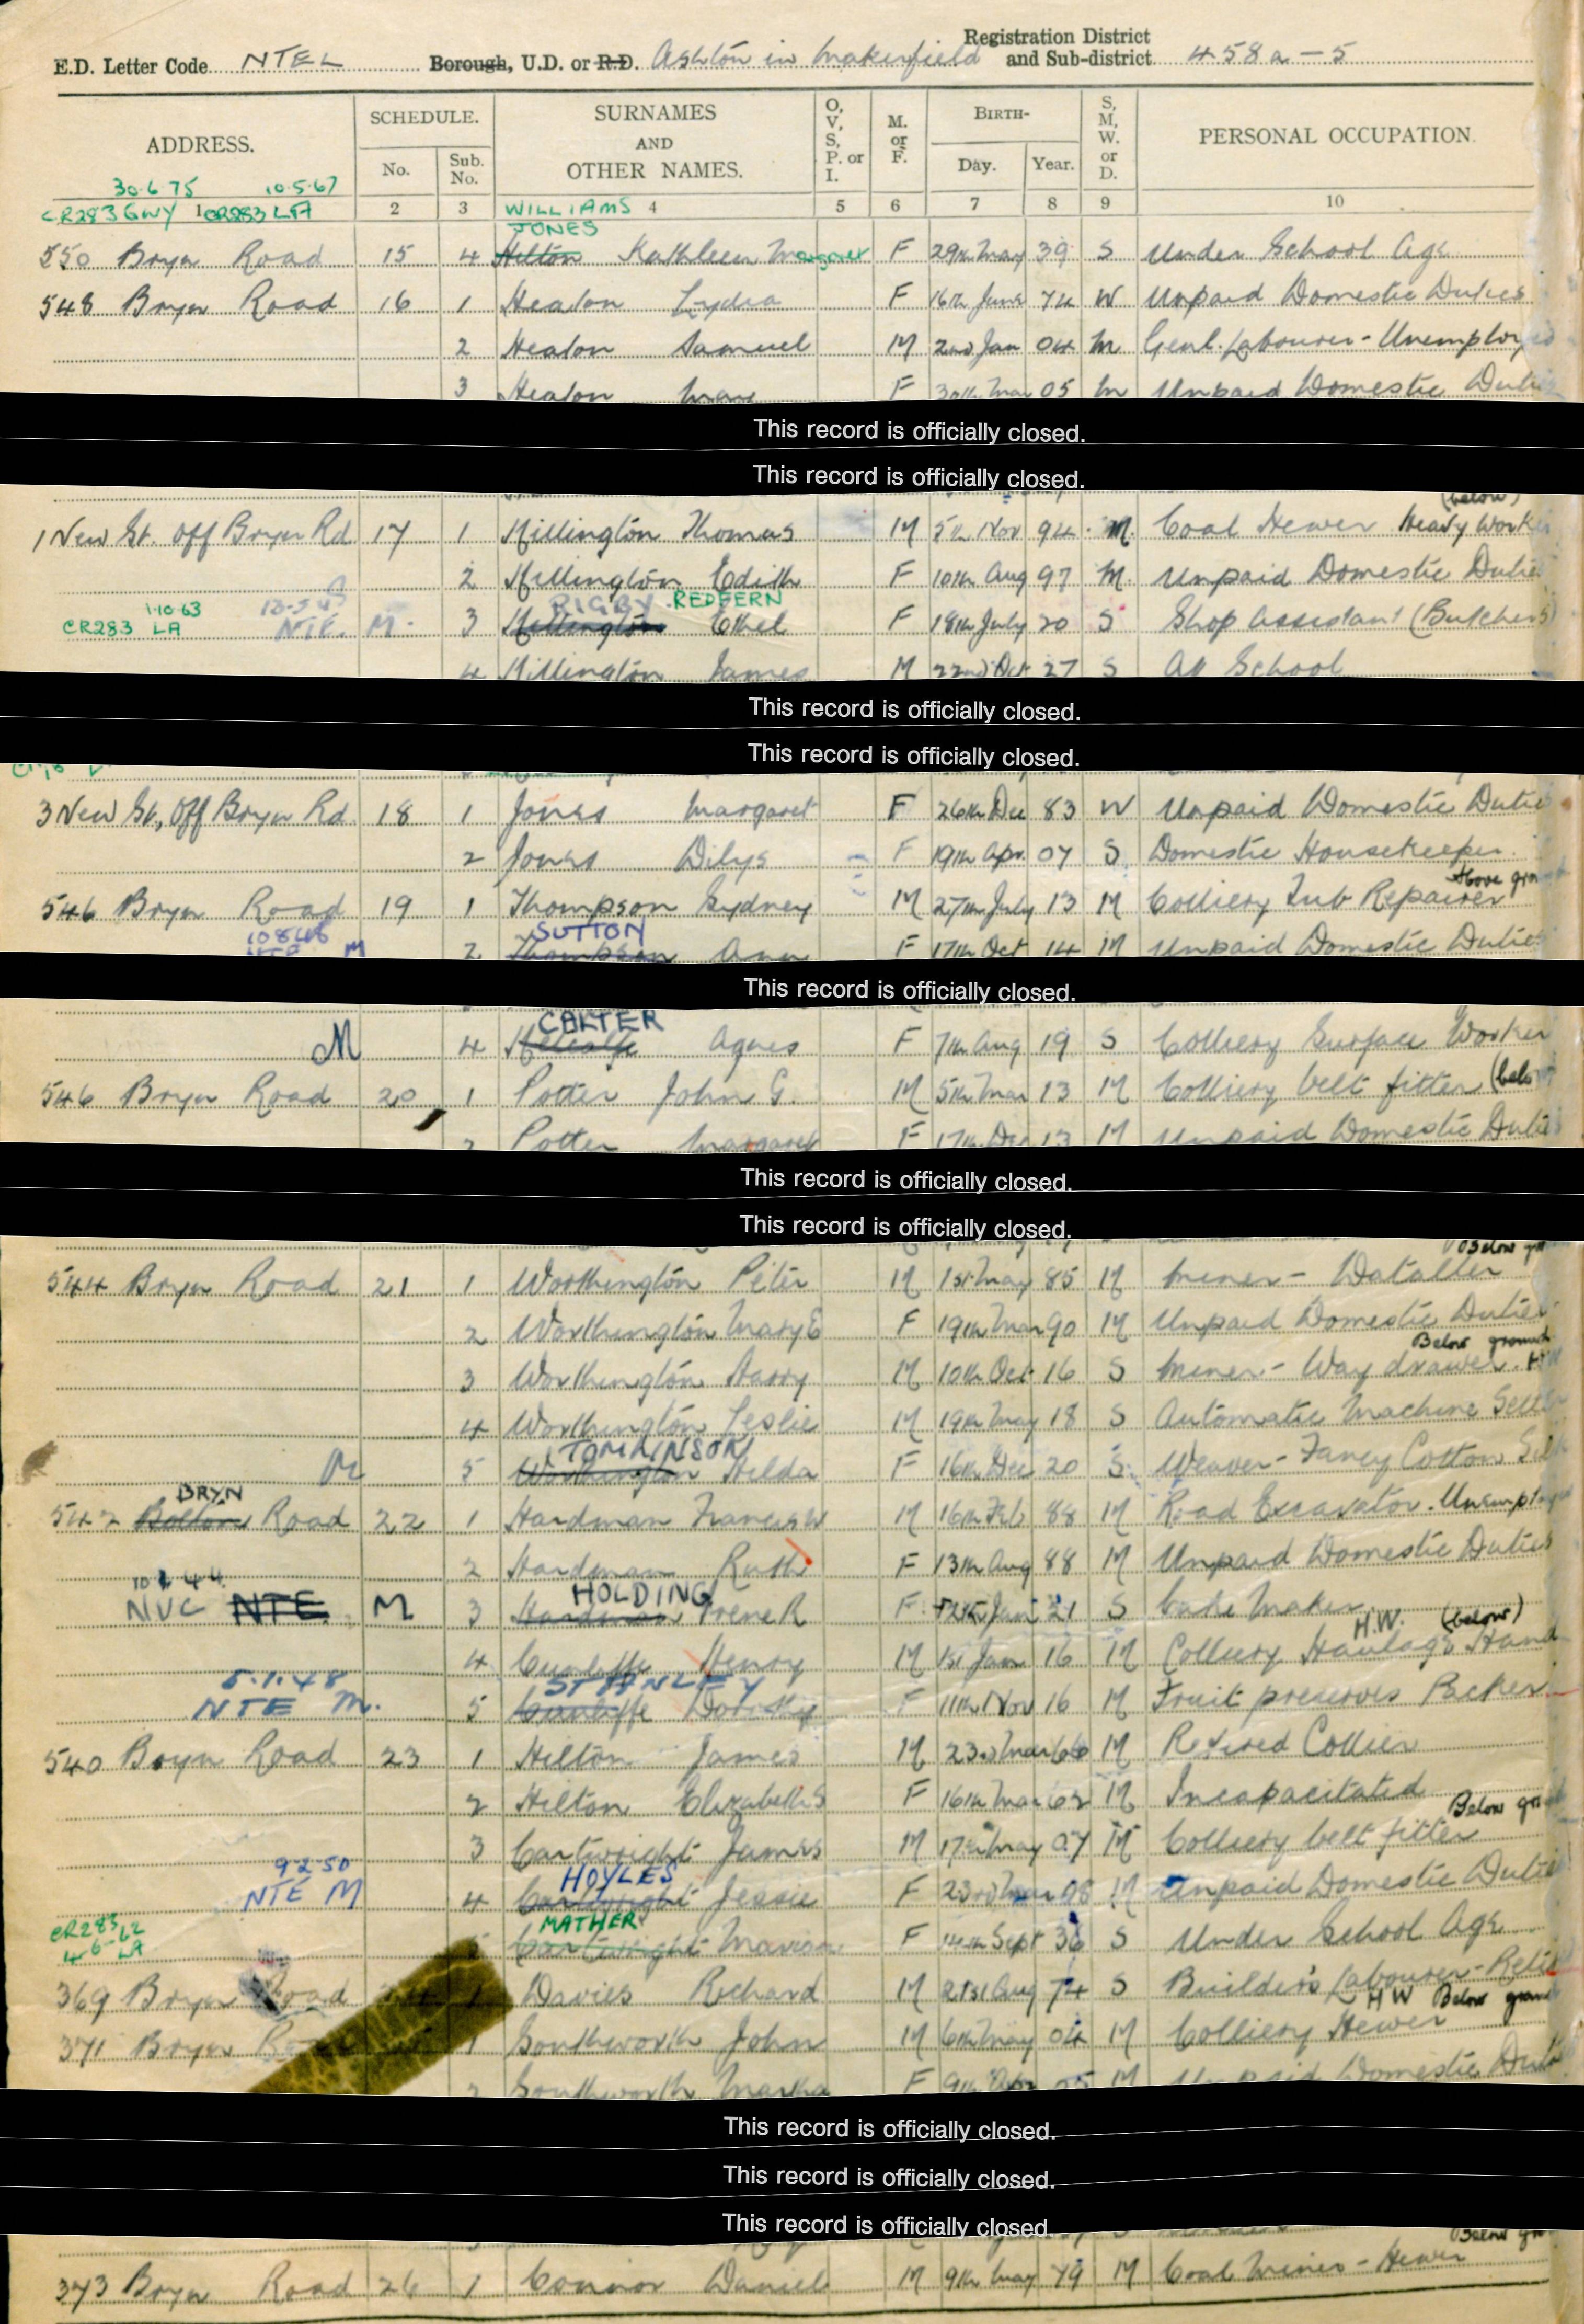 Registration District
E.D. Letter Code NTEL Borough, U.D. or R.D. Ashton in Makerfield and Sub-district 458a-5
ADDRESS. SCHEDULE. SURNAMES AND OTHER NAMES. O, V, S, P. or I. M. or F. BIRTH- S, M, W. or D. PERSONAL OCCUPATION.
No. Sub. No. Day. Year.
30.6.75 10.5.67
CR283 GWY 1 CR283 LA 2 3 WILLIAMS 4 5 6 7 8 9 10
JONES
550 Bryn Road 15 4 Hilton Kathleen Margaret F 29th May 39 S Under School Age
548 Bryn Road 16 1 Heaton Lydia F 16th June 74 W Unpaid Domestic Duties
2 Heaton Samuel M 2nd Jan 04 M Genl. Labourer - Unemployed
3 Heaton May F 30th Mar 05 M Unpaid Domestic Duties
This record is officially closed.
This record is officially closed.
(below)
1 New St. Off Bryn Rd 17 1 Millington Thomas M 5th Nov 94 M. Coal Hewer Heavy Worker
2 Millington Edith F 10th Aug 97 M. Unpaid Domestic Duties
1.10.63 RIGBY REDFERN
CR283 LA NTE. M. 3 Millington Ethel F 18th July 20 S Shop Assistant (Butchers)
4 Millington James M 22nd Oct 27 S At School
This record is officially closed.
This record is officially closed.
3 New St, Off Bryn Rd. 18 1 Jones Margaret F 26th Dec 83 W Unpaid Domestic Duties
2 Jones Dilys F 19th Apr. 07 S Domestic Housekeeper.
Above ground
546 Bryn Road 19 1 Thompson Sydney M 27th July 13 M Colliery Tub Repairer
10.8.46 SUTTON
NTE M 2 Thompson Ann F 17th Oct 14 M Unpaid Domestic Duties
This record is officially closed.
CARTER
M 4 Metcalfe Agnes F 7th Aug 19 S Colliery Surface Worker
546 Bryn Road 20 1 Potter John G. M 5th Mar 13 M Colliery belt fitter (below
2 Potter Margaret F 17th Dec 13 M Unpaid Domestic Duties
This record is officially closed.
This record is officially closed.
Below
544 Bryn Road 21 1 Worthington Peter M 1st May 85 M Miner - Dataller
2 Worthington Mary E F 19th Mar 90 M Unpaid Domestic Duties
Below ground
3 Worthington Harry M 10th Oct 16 S Miner - Way drawer. HW
4 Worthington Leslie M 19th May 18 S Automatic Machine Setter
TOMKINSON
M 5 Worthington Hilda F 16th Dec 20 S. Weaver - Fancy Cotton Silk
BRYN
542 Bolton Road 22 1 Hardman Francis W M 16th Feb 88 M Road Excavator. Unemployed
2 Hardman Ruth F 13th Aug 88 M Unpaid Domestic Duties
HOLDING
NVC NTE. M 3 Hardman Irene R F Jan 21 S Cake Maker.
H.W. (below)
4 Cunliffe Henry M 1st Jan 16 M Colliery Haulage Hand
5.1.48 STANLEY
NTE M. 5 Cunliffe Dorothy F 11th Nov 16 M Fruit preserves Packer
540 Bryn Road 23 1 Hilton James M 23rd Mar 66 M Retired Collier
2 Hilton Elizabeth S F 16th Mar M Incapacitated
Below ground
3 Cartwright James M 17th May 07 M Colliery belt fitter
9.2.50 HOYLES
NTE M 4 Cartwright Jessie F 23rd 08 M Unpaid Domestic Duties
CR283 MATHER
4.6.62 LA Cartwright Marion F 14th Sept 36 S Under School Age
369 Bryn Road 1 Davies Richard M 21st Aug 74 S Builder's Labourer - Retired
HW Below ground
371 Bryn 1 Southworth John M 6th May 04 M Colliery Hewer
2 Southworth Martha F 9th Apr 05 M Unpaid Domestic Duties
This record is officially closed.
This record is officially closed.
This record is officially closed.
Below
373 Bryn Road 26 1 Connor Daniel M 9th May 79 M Coal Miner - Hewer